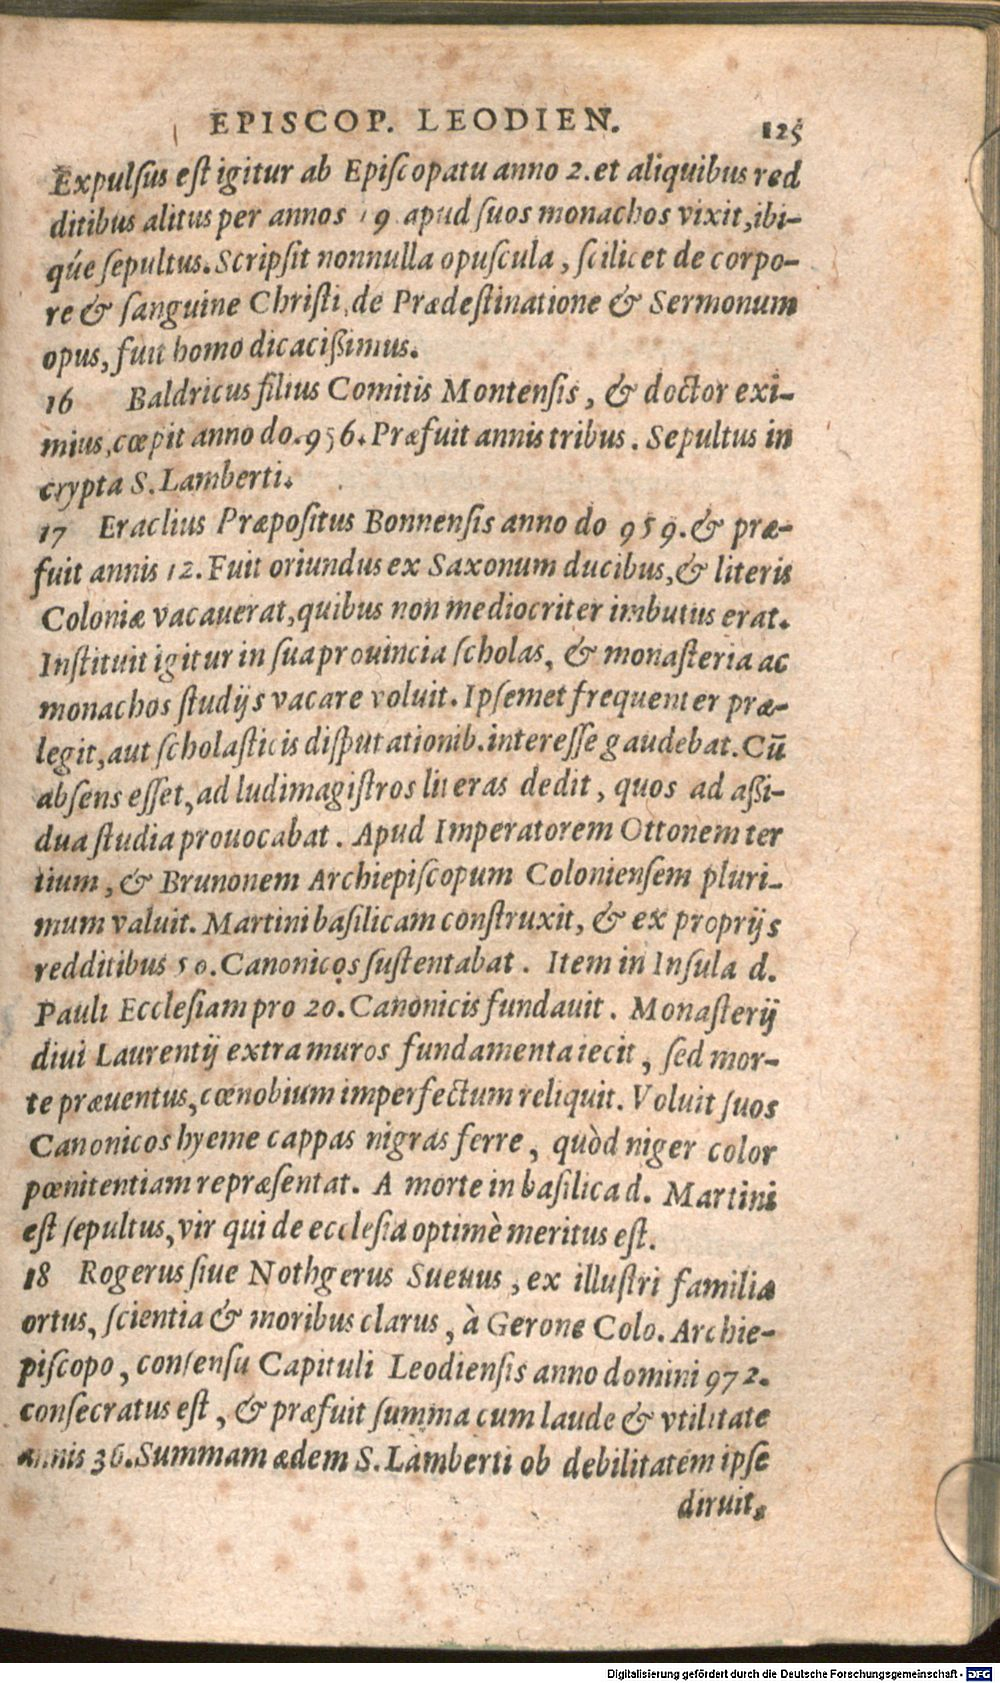 EPISCOP. LEODIEN. 125
Expulsus est igitur ab Episcopatu anno 2. et aliquibus red
ditibus alitus per annos 19 apud suos monachos vixit, ibi-
qúe sepultus. Scripsit nonnulla opuscula, scilicet de corpo-
re & sanguine Christi, de Prædestinatione & Sermonum
opus, fuit homo dicacißimus.
16 Baldricus filius Comitis Montensis, & doctor exi-
mius, cœpit anno do. 956. Præfuit annis tribus. Sepultus in
crypta S. Lamberti.
17 Eraclius Præpositus Bonnensis anno do 959. & præ-
fuit annis 12. Fuit oriundus ex Saxonum ducibus, & literis
Coloniæ vacauerat, quibus non mediocriter imbutus erat.
Instituit igitur in sua prouincia scholas, & monasteria ac
monachos studijs vacare voluit. Ipsemet frequenter præ-
legit, aut scholasticis disputationib. interesse gaudebat. Cū
absens esset, ad ludimagistros literas dedit, quos ad aßi-
dua studia prouocabat. Apud Imperatorem Ottonem ter
tium, & Brunonem Archiepiscopum Coloniensem pluri-
mum valuit. Martini basilicam construxit, & ex proprijs
redditibus 50. Canonicos sustentabat. Item in Insula d.
Pauli Ecclesiam pro 20. Canonicis fundauit. Monasterij
diui Laurentij extra muros fundamenta iecit, sed mor-
te præuentus, cœnobium imperfectum reliquit. Voluit suos
Canonicos hyeme cappas nigras ferre, quòd niger color
pœnitentiam repræsentat. A morte in basilica d. Martini
est sepultus, vir qui de ecclesia optimè meritus est.
18 Rogerus siue Nothgerus Sueuus, ex illustri familia
ortus, scientia & moribus clarus, à Gerone Colo. Archie-
piscopo, consensu Capituli Leodiensis anno domini 972.
consecratus est, & præfuit summa cum laude & vtilitate
annis 36. Summam ædem S. Lamberti ob debilitatem ipse
diruit,
Digitalisierung gefördert durch die Deutsche Forschungsgemeinschaft - DFG